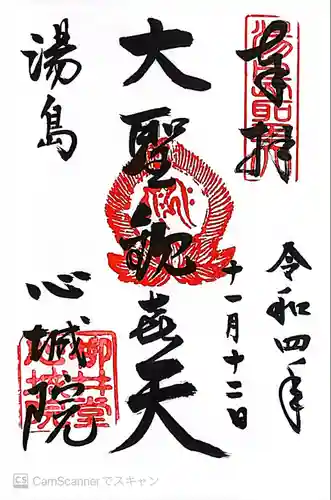 奉拝
令和四年
十一月十二日
大聖歓喜天
湯島
心城院
CamScannerでスキャン